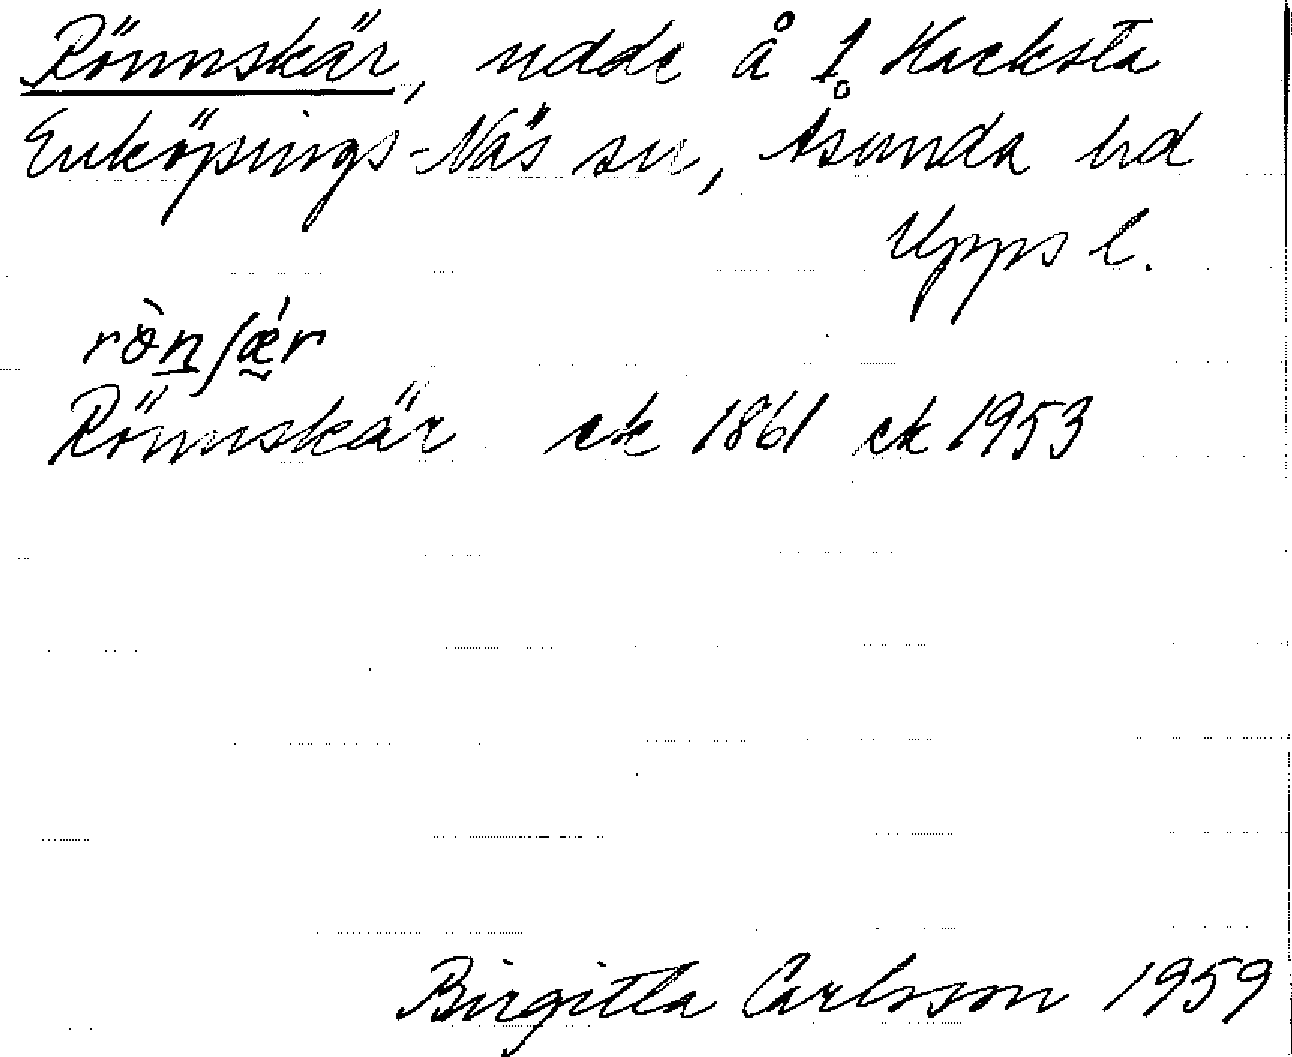 Rönnskär, udde å 1 Hacksta
Enköpings-Näs sn, Åsunda hd
Upps l.
rònʃǽr
Rönnskär ek 1861 ek 1953
Birgitta Carlsson 1959